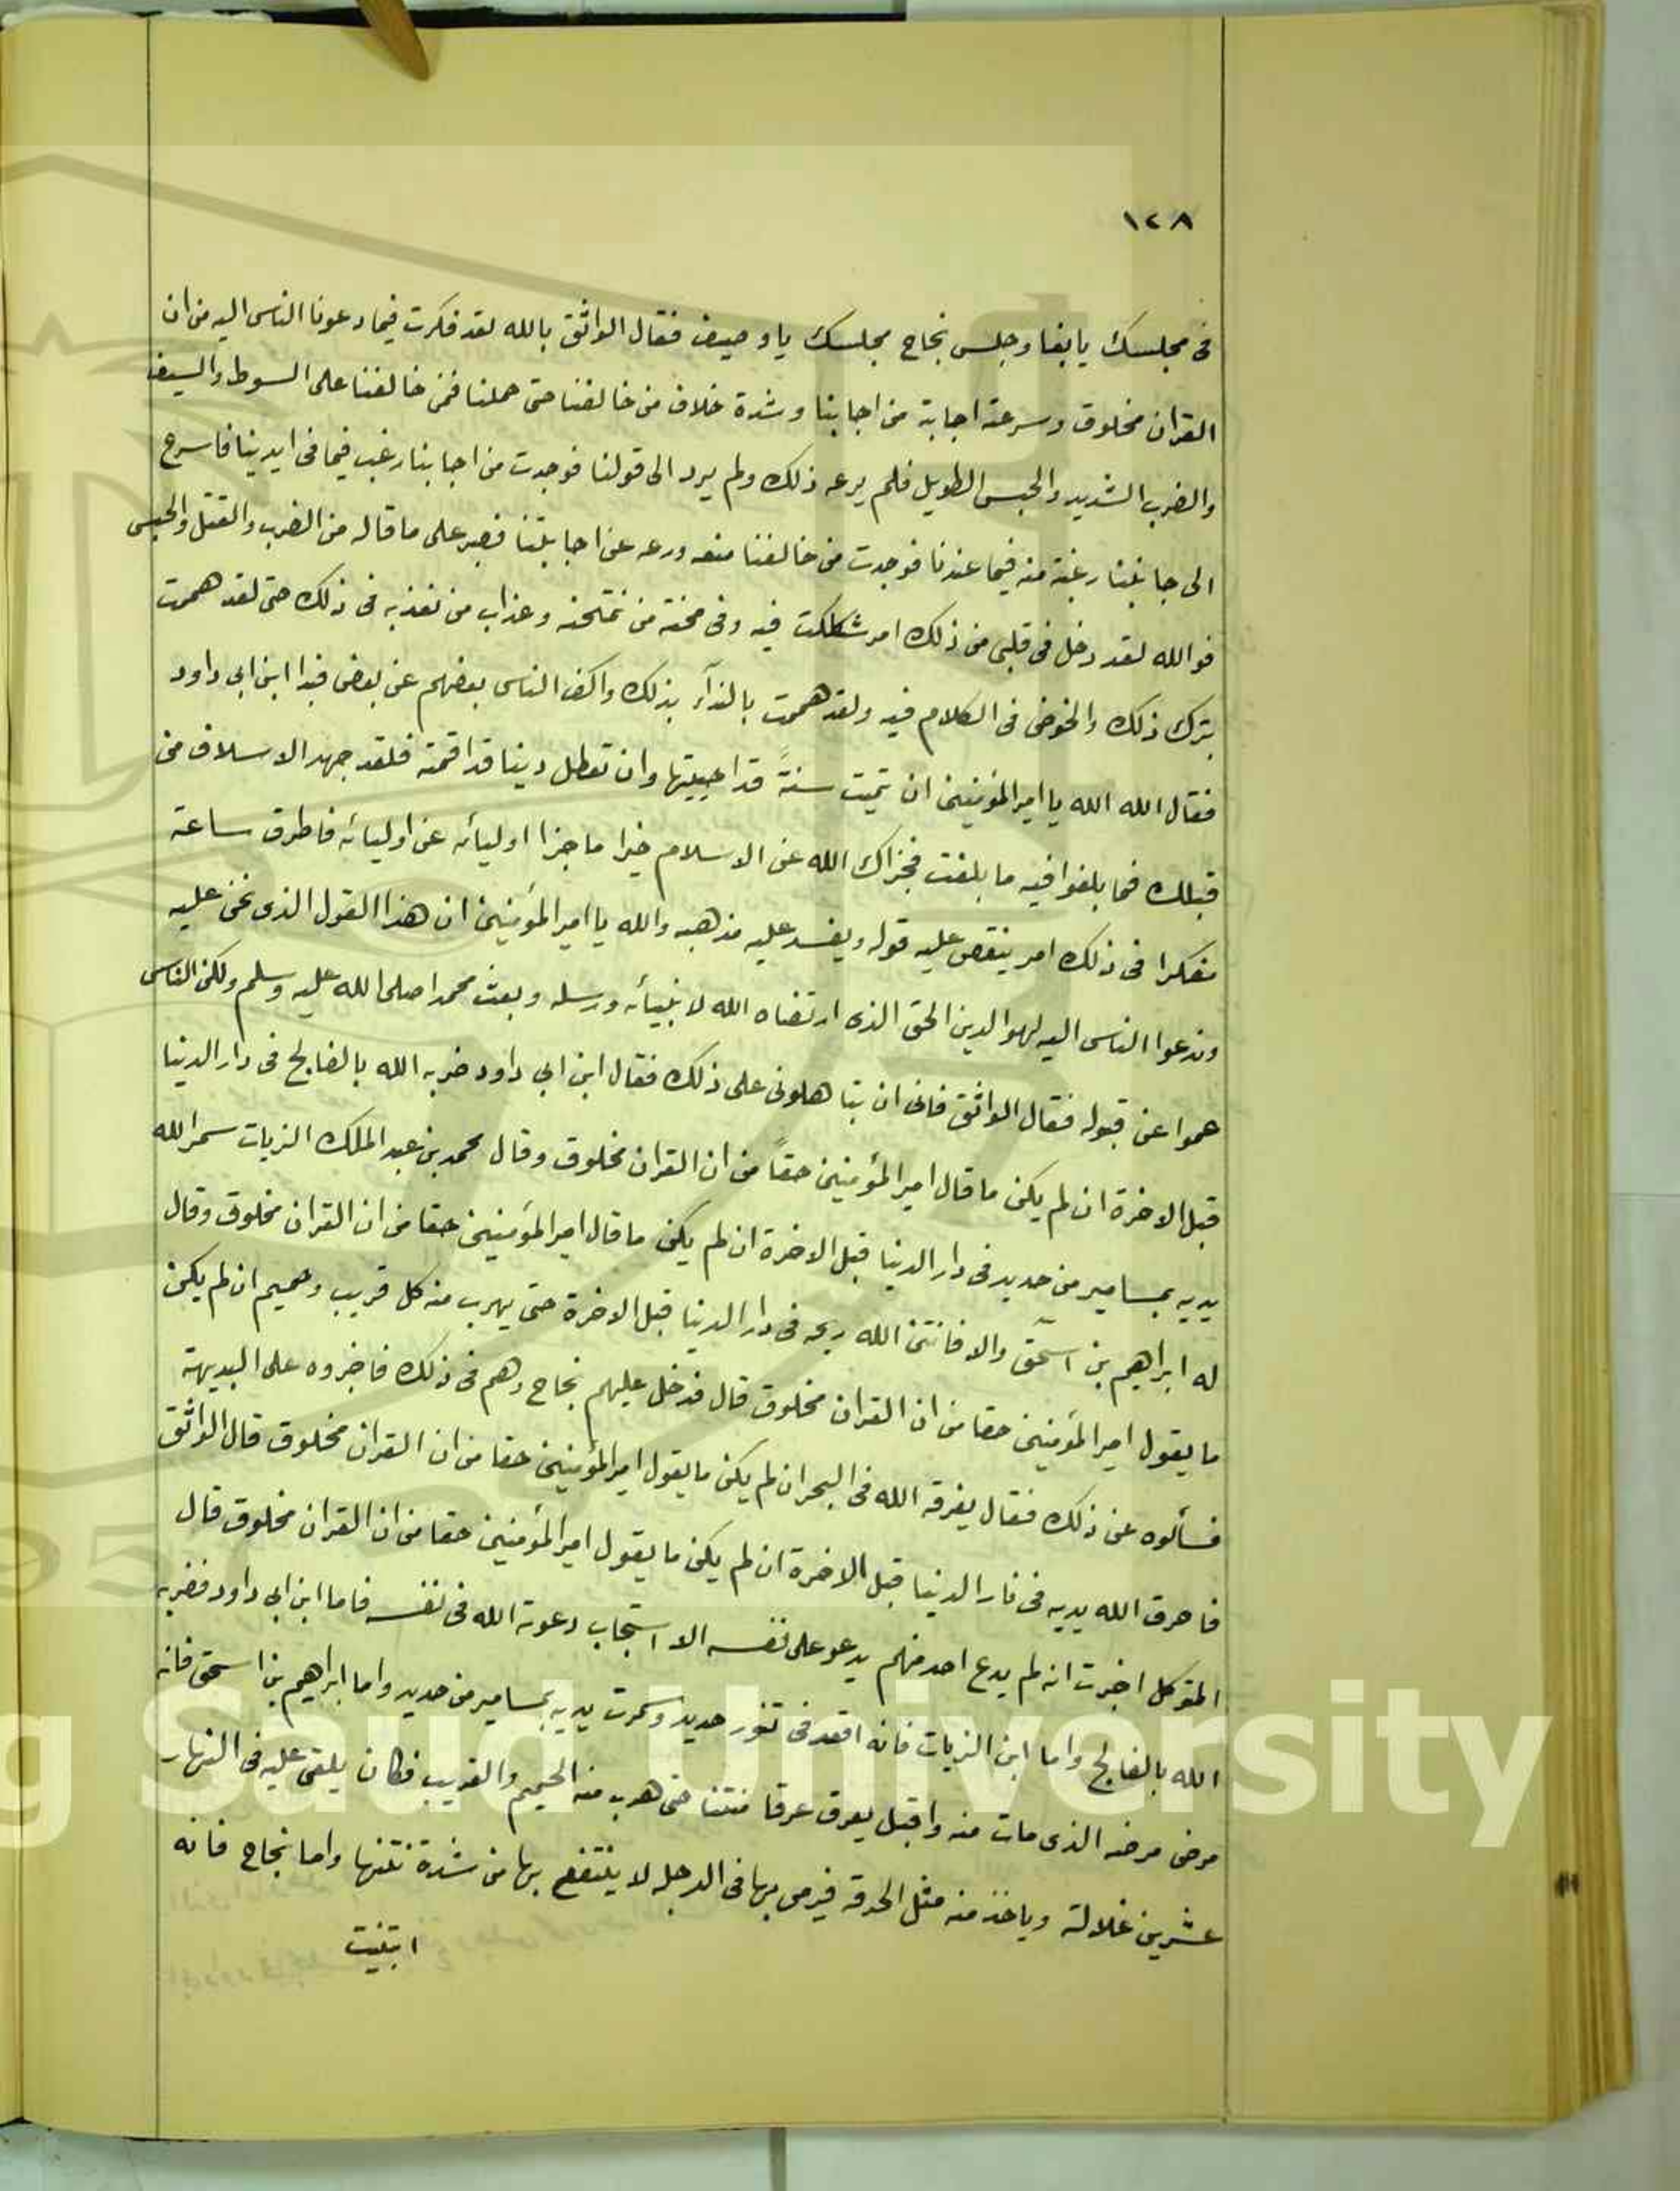 ١٢٨
فى مجلسك يا بغا وجلس نجاح مجلسك يا وصيف فقال الواثق بالله لقد فكرت فيما دعونا الناس اليه من ان
القران مخلوق وسرعة اجابة من اجابنا وشدة خلاف من خالفنا حتى حملنا فمن خالفنا على السوط والسيف
والضرب الشديد والحبس الطويل فلم يرعه ذلك ولم يرد الى قولنا فوجدت من اجابنا رغب فيما فى ايدينا فاسرع
الى جابتنا رغبة منه فيما عندنا فوجدت من خالفنا منعه ورعه عن اجابتنا فصبر على ما قاله من الضرب والقتل والحبس
فوالله لقد دخل فى قلبى من ذلك امر شككت فيه وفى محنة من نمتحنه وعذاب من نعذبه فى ذلك حتى لقد هممت
بترك ذلك والخوض فى الكلام فيه ولقد هممت بالندآء بذلك واكف الناس بعضهم عن بعض فبدا ابن ابى داود
فقال الله الله يا امير المؤمنين ان تميت سنةً قد احييتها وان تعطل دينا قد اقمته فلقد جهد الاسلاف من
قبلك فما بلغوا فيه ما بلغت فجزاك الله عن الاسلام خيرا ما جزا اوليائه عن اوليائه فاطرق ساعة
مفكرا فى ذلك امر ينقص عليه قوله ويفسد عليه مذهبه والله يا امير المؤمنين ان هذا القول الذى نحن عليه
وندعوا الناس اليه لهو الدين الحق الذى ارتضاه الله لانبيائه ورسله وبعث محمدا صلى الله عليه وسلم ولكن الناس
عموا عن قبوله فقال الواثق فانى ان تباهلونى على ذلك فقال ابن ابى داود ضربه الله بالفالج فى دار الدنيا
قبل الاخرة ان لم يكن ما قال امير المؤمنين حقاً من ان القران مخلوق وقال محمد بن عبد الملك الزيات سمر الله
يديه بمسامير من حديد فى دار الدنيا قبل الاخرة ان لم يكن ما قال امير المؤمنين حقا من ان القران مخلوق وقال
له ابراهيم بن اسحق والا فانتن الله ريحه فى دار الدنيا قبل الاخرة حتى يهرب منه كل قريب وحميم ان لم يكن
ما يقول امير المؤمنين حقا من ان القران مخلوق قال فدخل عليهم نجاح وهم فى ذلك فاخبروه على البديهة
فسألوه عن ذلك فقال يغرقه الله فى البحر ان لم يكن ما يقول امير المؤمنين حقا من ان القران مخلوق قال الواثق
فاحرق الله يديه فى نار الدنيا قبل الاخرة ان لم يكن ما يقول امير المؤمنين حقا من ان القران مخلوق قال
المتوكل اخبرت انه لم يدع احد منهم يدعو على نفسه الا استجاب دعوته الله فى نفسه فاما ابن ابى داود فضربه
الله بالفالج واما ابن الزيات فانه اقعد فى تنور حديد وسمرت يديه بمسامير من حديد واما ابراهيم بن اسحق فانه
مرض مرضه الذى مات منه واقبل يعرق عرقا منتنا حتى هرب منه الحميم والقريب فكان يلقى عليه فى النهار
عشرين غلالة وياخذ منه مثل الحرقه فيرمى بها فى الدجله لا ينتفع بها من شدة نتنها واما نجاح فانه
ابتنيت